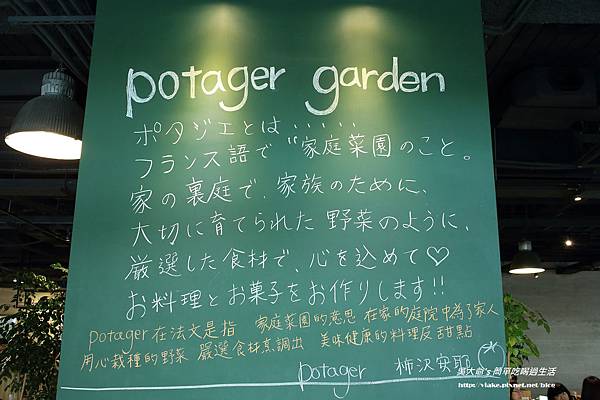 potager garden
ポタジェとは・・・・・
フランス語で“家庭菜園のこと。
家の裏庭で、家族のために、
大切に育てられた野菜のように、
厳選した食材で、心を込めて♡
お料理とお菓子をお作りします!!
potager 在法文是指 家庭菜園的意思 在家的庭院中為了家人
用心栽種的野菜 嚴選食材烹調出 美味健康的料理及甜點
potager 柿沢安耶
吳大俞's簡單吃喝過生活
http://vlake.pixnet.net/bice